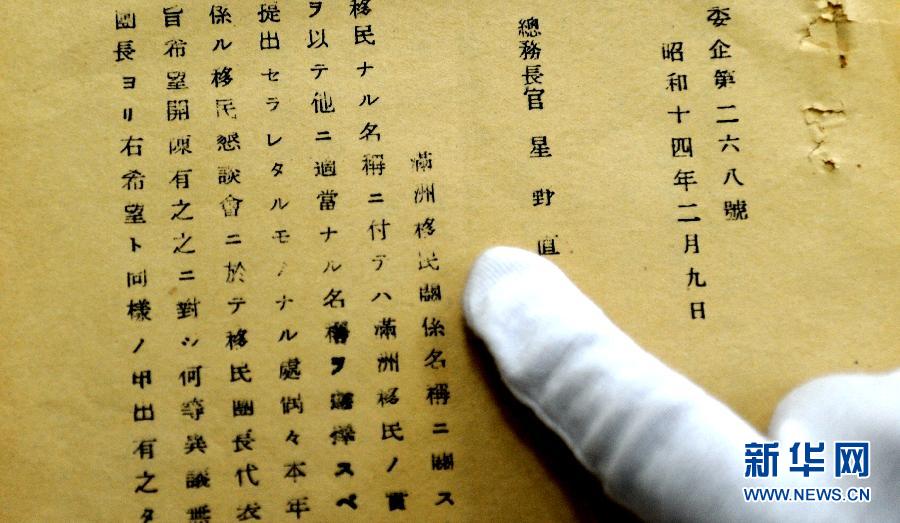 委企第二六八號
昭和十四年二月九日
總務長官 星野直
滿洲移民關係名稱ニ關ス
移民ナル名稱ニ付テハ滿洲移民ノ實
ヲ以テ他ニ適當ナル名稱ヲ選擇スベ
提出セラレタルモノナル處偶々本年
係ル移民懇談會ニ於テ移民團長代表
旨希望開陳有之之ニ對シ何等異議無
團長ヨリ右希望ト同樣ノ申出有之タ
新华网
WWW.NEWS.CN